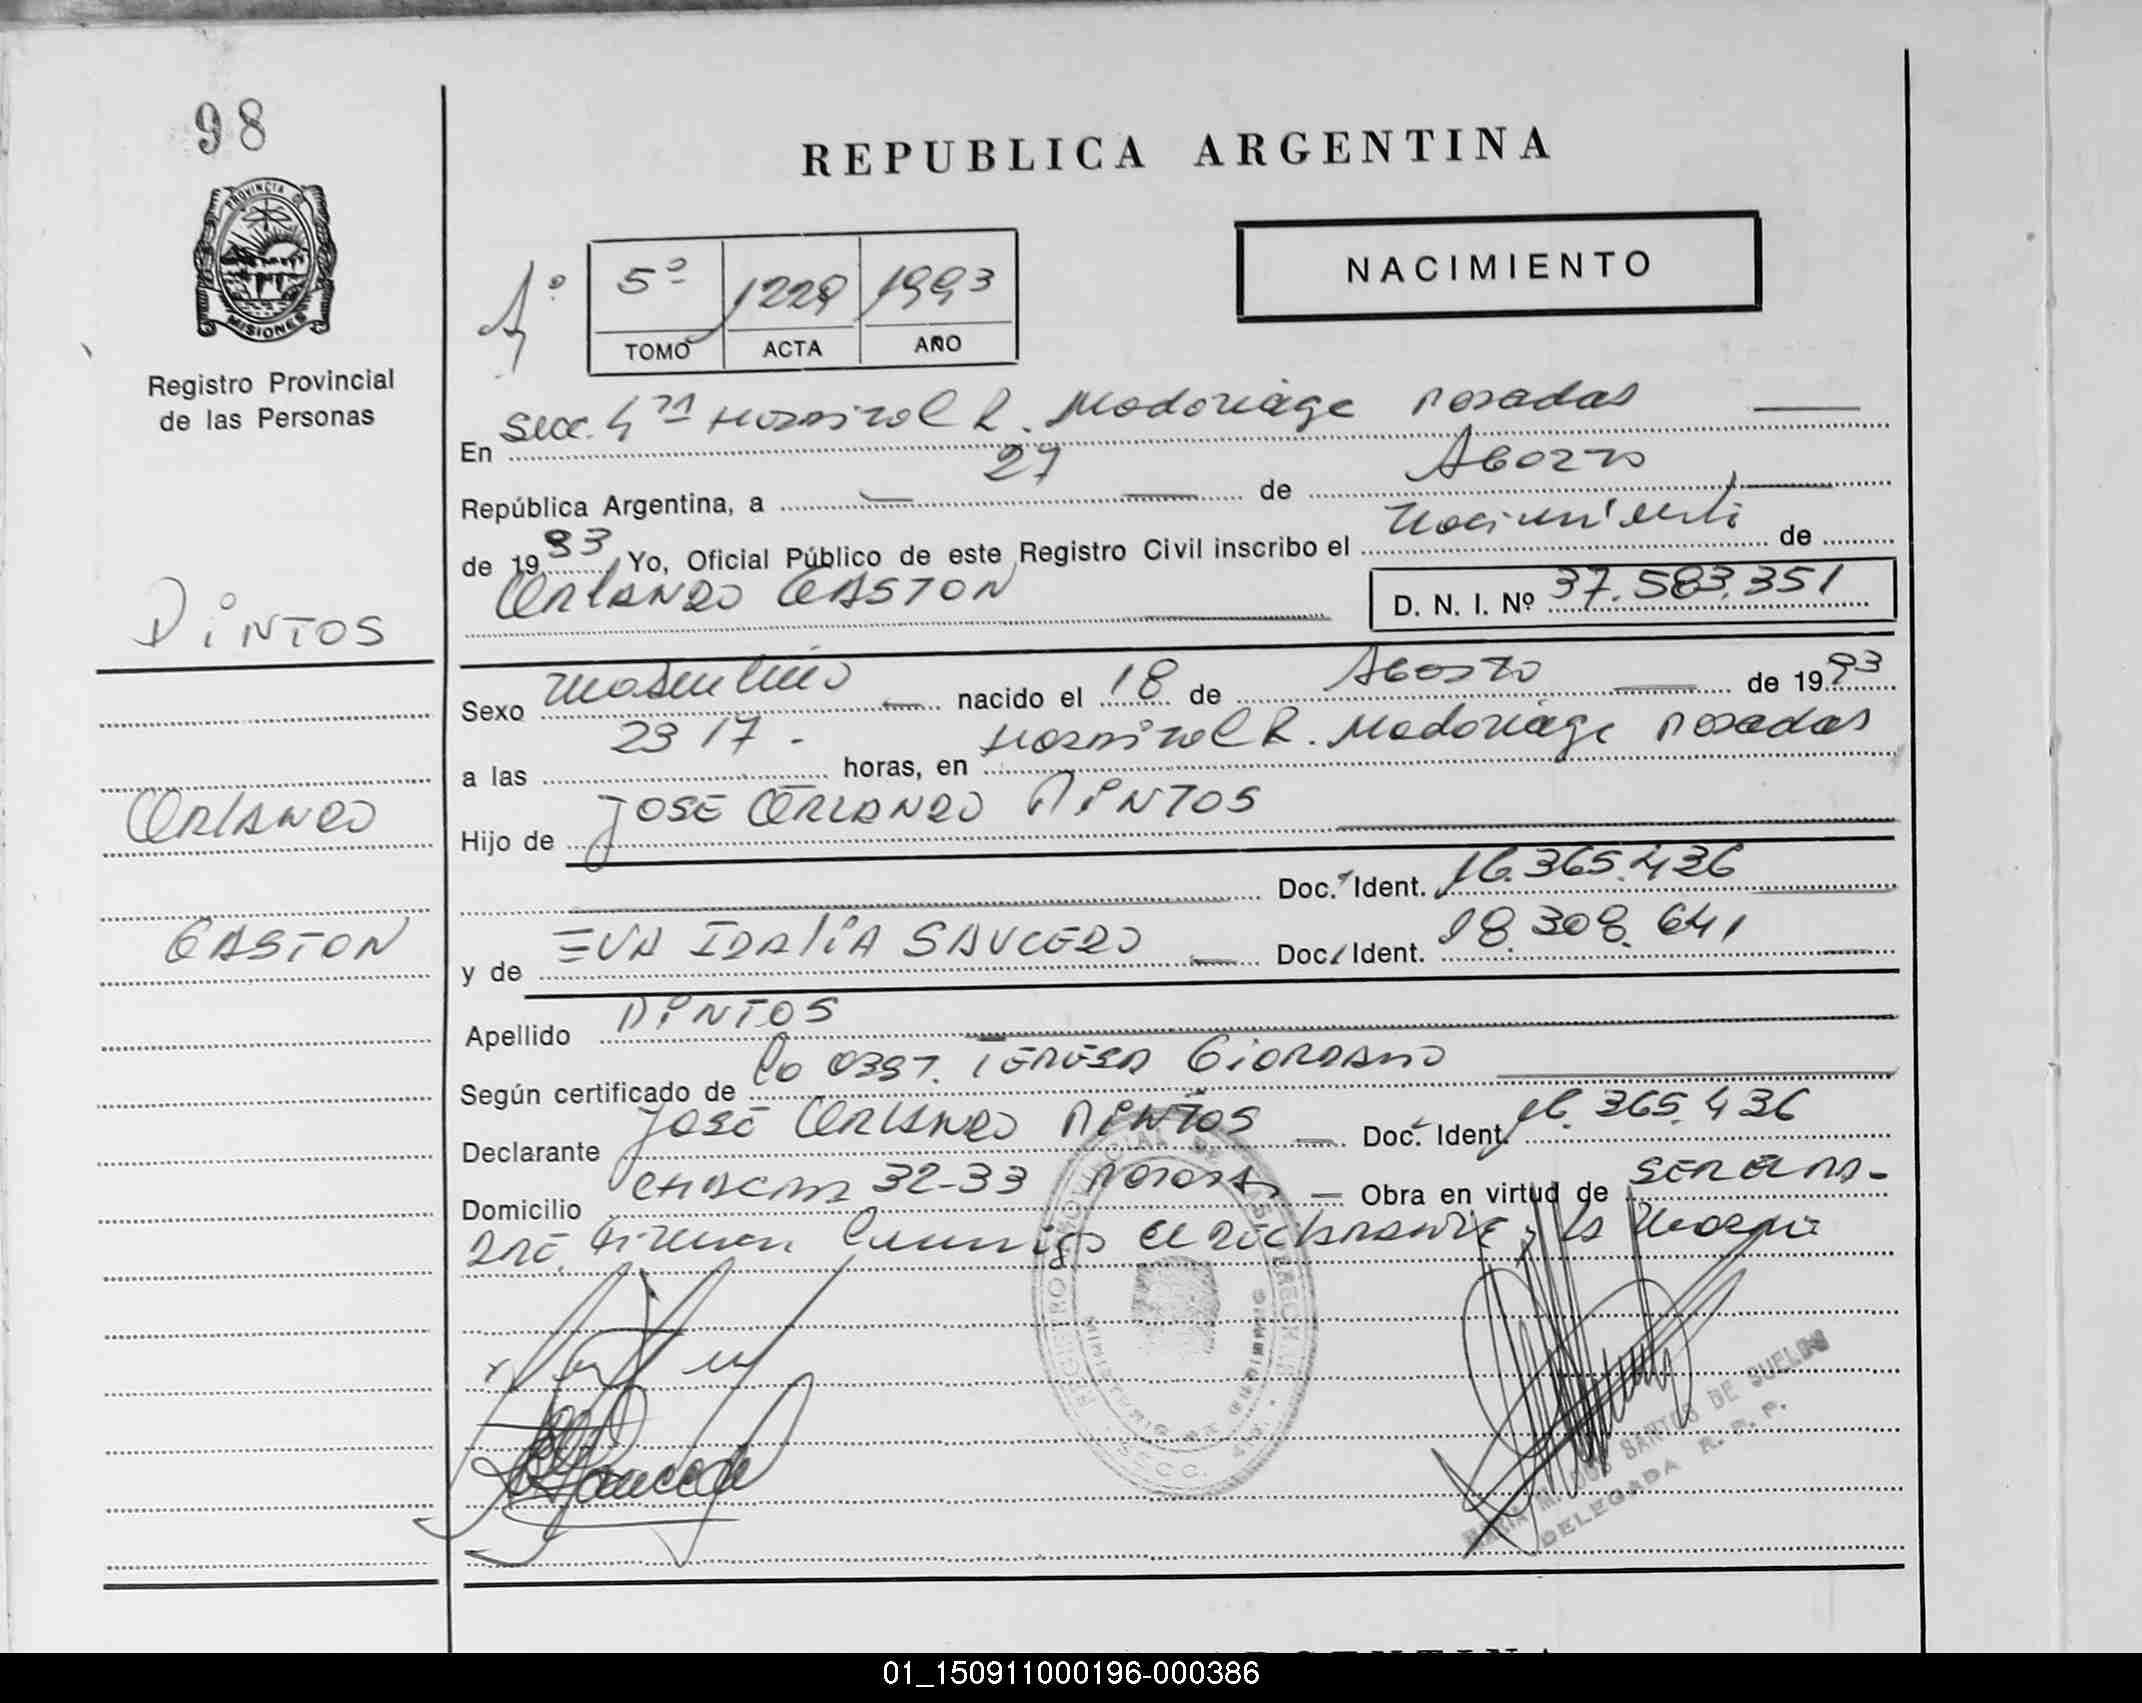 98
PROVINCIA DE
MISIONES
Registro Provincial
de las Personas
REPUBLICA ARGENTINA
NACIMIENTO
5º 1229 1993
TOMO ACTA AÑO
En Secc. 4ta Hospital R. Madariaga Posadas
República Argentina, a 27 de Agosto
de 1993, Yo, Oficial Público de este Registro Civil inscribo el Nacimiento de
ORLANDO GASTON
D. N. I. Nº 37.583.351
PINTOS
ORLANDO
GASTON
Sexo Masculino nacido el 18 de Agosto de 1993
a las 23 17 - horas, en Hospital R. Madariaga Posadas
Hijo de JOSE ORLANDO PINTOS
Doc. Ident. 16.365.436
y de EVA IDALIA SAUCEDO Doc. Ident. 18.308.641
Apellido PINTOS
Según certificado de la OBST. TERESA GIORDANO
Declarante JOSÉ ORLANDO PINTOS Doc. Ident. 16.365.436
Domicilio CHACRA 32-33 Posadas Obra en virtud de SER EL PA-
DRE. Firman conmigo el declarante y la Madre
REGISTRO PROVINCIAL DE LAS PERSONAS
MINISTERIO DE GOBIERNO
SECC. 4ta.
MARIA M. DOS SANTOS DE
DELEGADA R. P. P.
01_150911000196-000386